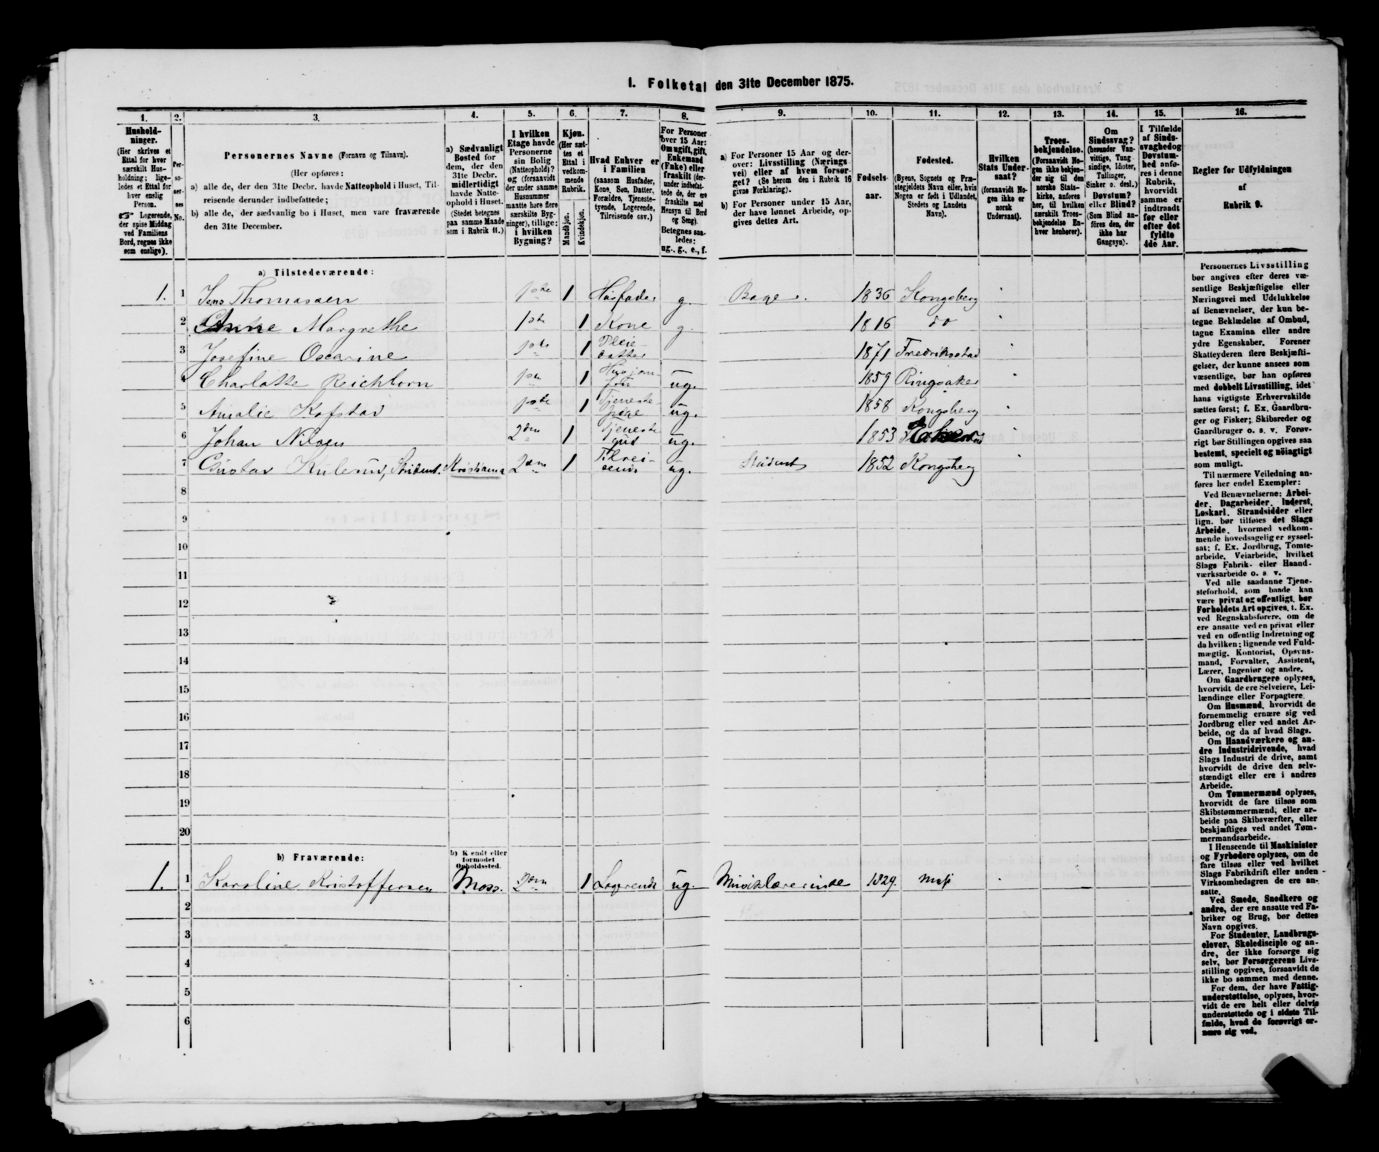 1. Folketal den 31te December 1875.
1. 2. 3. 4. 5. 6. 7. 8. 9. 10. 11. 12. 13. 14. 15. 16.
Hushold-
ninger.
(Her skrives et
Ettal for hver
særskilt Hus-
holdning; lige-
ledes et Ettal for
hver enslig
Person.
Logerende,
der spise Middag
ved Familiens
Bord, regnes ikke
som enslige).
Per-
so-
ner-
nes
No.
Personernes Navne (Fornavn og Tilnavn).
(Her opføres:
a) alle de, der den 31te Decbr. havde Natteophold i Huset, Til-
reisende derunder indbefattede;
b) alle de, der sædvanlig bo i Huset, men vare fraværende
den 31te December.
a) Sædvanligt
Bosted for
dem, der den
31te Decbr.
midlertidigt
havde Natte-
ophold i Huset.
(Stedet betegnes
paa samme Maade
som i Rubrik 11.)
I hvilken
Etage havde
Personerne
sin Bolig
(Natteophold)?
og (forsaavidt
der under samme
Husnummer
matte høre flere
særskilte Byg-
ninger), tillige:
i hvilken
Bygning?
Kjøn.
(Her sæt-
tes et
Ettal i
vedkom-
mende
Rubrik.
Mandkjøn.
Kvindekjøn.
Hvad Enhver er
i Familien
(saasom Husfader,
Kone, Søn, Datter,
Forældre, Tjeneste-
tyende, Logerende,
Tilreisende osv.)
For Personer
over 15 Aar:
Om ugift, gift,
Enkemand
(Enke) eller
fraskilt (der-
under indbefat-
tede de, der ere
fraskilte med
Hensyn til Bord
og Seng).
Betegnes saa-
ledes:
ug., g., e., f.
a) For Personer 15 Aar og der-
over: Livsstilling (Nærings-
vei) eller af hvem forsør-
get? (Se herom den i Rubrik 16
givne Forklaring).
b) For Personer under 15 Aar,
der have lønnet Arbeide, op-
gives dettes Art.
Fødsels-
aar.
Fødested.
(Byens, Sognets og Præ-
stegjeldets Navn eller, hvis
Nogen er født i Udlandet,
Stedets og Landets
Navn).
Hvilken
Stats Under-
saat?
(forsaavidt No-
gen ikke er
norsk
Undersaat).
Troes-
bekjendelse.
(Forsaavidt No-
gen ikke bekjen-
der sig til den
norske Stats-
kirke, anføres
her, til hvilken
særskilt Troes-
bekjendelse En-
hver henhører).
Om
Sindssvag?
(herunder Van-
vittige, Tung-
sindige, Idioter,
Tullinger,
Sinker o. desl.)
Døvstum?
eller Blind?
(Som Blind an-
føres den, der
ikke har
Gangsyn).
I Tilfælde
af Sinds-
svaghed og
Døvstum-
hed anfø-
res i denne
Rubrik,
hvorvidt
samme er
indtraadt
før eller
efter det
fyldte
4de Aar.
Regler for Udfyldningen
af
Rubrik 9.
a) Tilstedeværende:
1. 1 Jens Thomassen 1ste 1 Husfader g. Bager. 1836 Kongsberg
2 Anne Margrethe 1ste 1 Kone g. 1816 do
3 Josefine Oscarine 1ste 1 Pleie datter 1871 Fredriksstad
4 Charlotte Reichborn 1ste 1 ug. 1859 Ringsaker
5 Amalie Kofstad 1ste 1 Tjeneste pige ug. 1858 Kongsberg
6 Johan Nilsen 2den 1 Tjeneste gut ug. 1853
7 Gustav Student. Kristiania 2den 1 Tilrei- sende ug. Student 1852 Kongsberg
8
9
10
11
12
13
14
15
16
17
18
19
20
b) Fraværende:
b) Kjendt eller
formodet
Opholdssted.
1. 1 Karoline Kristoffersen Moss. 2den 1 Logerende ug. Musiklærerinde 1829 Moss
2
3
4
5
6
Personernes Livsstilling
bør angives efter deres væ-
sentlige Beskjæftigelse eller
Næringsvei med Udelukkelse
af Benævnelser, der kun be-
tegne Beklædelse af Ombud,
tagne Examina eller andre
ydre Egenskaber. Forener
Skatteyderen flere Beskjæfti-
gelser, der kunne ansees som
væsentlige, bør han opføres
med dobbelt Livsstilling, idet
hans vigtigste Erhvervskilde
sættes først; f. Ex. Gaardbru-
ger og Fisker; Skibsreder og
Gaardbruger o. s. v. Forøv-
rigt bør Stillingen opgives saa
bestemt, specielt og nöiagtigt
som muligt.
Til nærmere Veiledning an-
føres her endel Exempler:
Ved Benævnelserne: Arbei-
der, Dagarbeider, Inderst,
Løskarl, Strandsidder eller
lign. bør tilføies det Slags
Arbeide, hvormed vedkom-
mende hovedsagelig er syssel-
sat; f. Ex. Jordbrug, Tomte-
arbeide, Veiarbeide, hvilket
Slags Fabrik- eller Haand-
værksarbeide o. s. v.
Ved alle saadanne Tjene-
steforhold, som baade kan
være privat og offentligt, bør
Forholdets Art opgives, t. Ex.
ved Regnskabsførere, om de
ere ansatte ved en privat eller
ved en offentlig Indretning og
da hvilken; lignende ved Fuld-
mægtig, Kontorist, Opsyns-
mand, Forvalter, Assistent,
Lærer, Ingeniør og andre.
Om Gaardbrugere oplyses,
hvorvidt de ere Selveiere, Lei-
lændinge eller Forpagtere.
Om Husmænd, hvorvidt de
fornemmelig ernære sig ved
Jordbrug eller ved andet Ar-
beide, og da af hvad Slags.
Om Haandværkere og an-
dre Industridrivende, hvad
Slags Industri de drive, samt
hvorvidt de drive den selv-
stændigt eller ere i andres
Arbeide.
Om Tømmermænd oplyses,
hvorvidt de fare tilsøs som
Skibstømmermænd, eller ar-
beide paa Skibsværfter, eller
beskjæftiges ved andet Tøm-
mermandsarbeide.
I Henseende til Maskinister
og Fyrbødere oplyses, om de
fare tilsøs eller ved hvilket
Slags Fabrikdrift eller anden
Virksomhedsgren de ere an-
satte.
Ved Smede, Snedkere og
andre, der ere ansatte ved Fa-
briker og Brug, bør dettes
Navn opgives.
For Studenter, Landbrugs-
elever, Skoledisciple og an-
dre, der ikke forsørge sig
selv, bør Forsørgerens Livs-
stilling opgives, forsaavidt de
ikke bo sammen med denne.
For dem, der have Fattig-
understøttelse, oplyses, hvor-
vidt de ere helt eller delvis
understøttede og i sidste Til-
fælde, hvad de forøvrigt er-
nære sig ved.